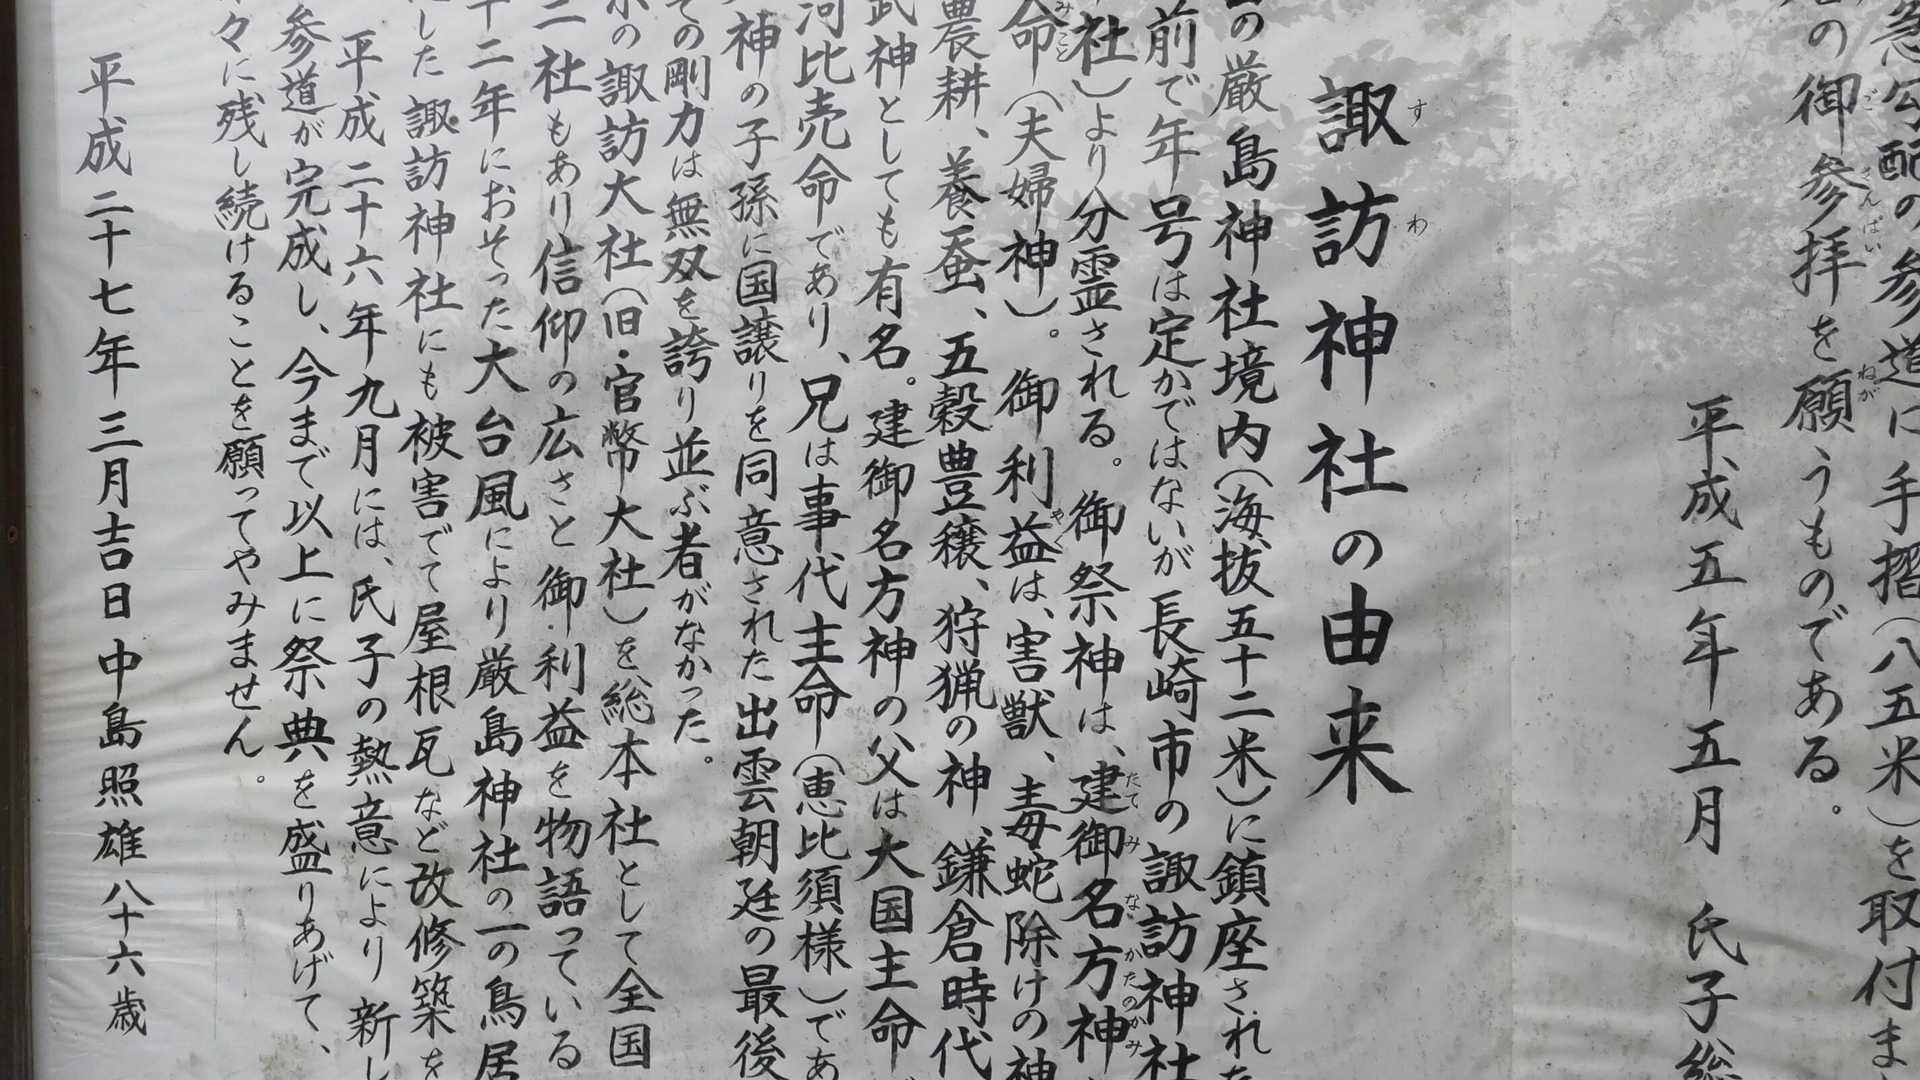 急勾配の参道に手摺（八五米）を取付ま
の御参拝を願うものである。
平成五年五月　氏子総
諏訪神社の由来
の厳島神社境内（海抜五十二米）に鎮座された
前で年号は定かではないが長崎市の諏訪神社
社）より分霊される。御祭神は、建御名方神
命（夫婦神）。御利益は、害獣、毒蛇除けの神
農耕、養蚕、五穀豊穣、狩猟の神、鎌倉時代
武神としても有名。建御名方神の父は大国主命
河比売命であり、兄は事代主命（恵比須様）であ
神の子孫に国譲りを同意された出雲朝廷の最後
ての剛力は無双を誇り並ぶ者がなかった。
の諏訪大社（旧・官幣大社）を総本社として全国
二社もあり信仰の広さと御利益を物語っている
十二年におそった大台風により厳島神社の一の鳥居
した諏訪神社にも被害でて屋根瓦など改修築を
平成二十六年九月には、氏子の熱意により新し
参道が完成し、今まで以上に祭典を盛りあげて、
々に残し続けることを願ってやみません。
平成二十七年三月吉日中島照雄八十六歳